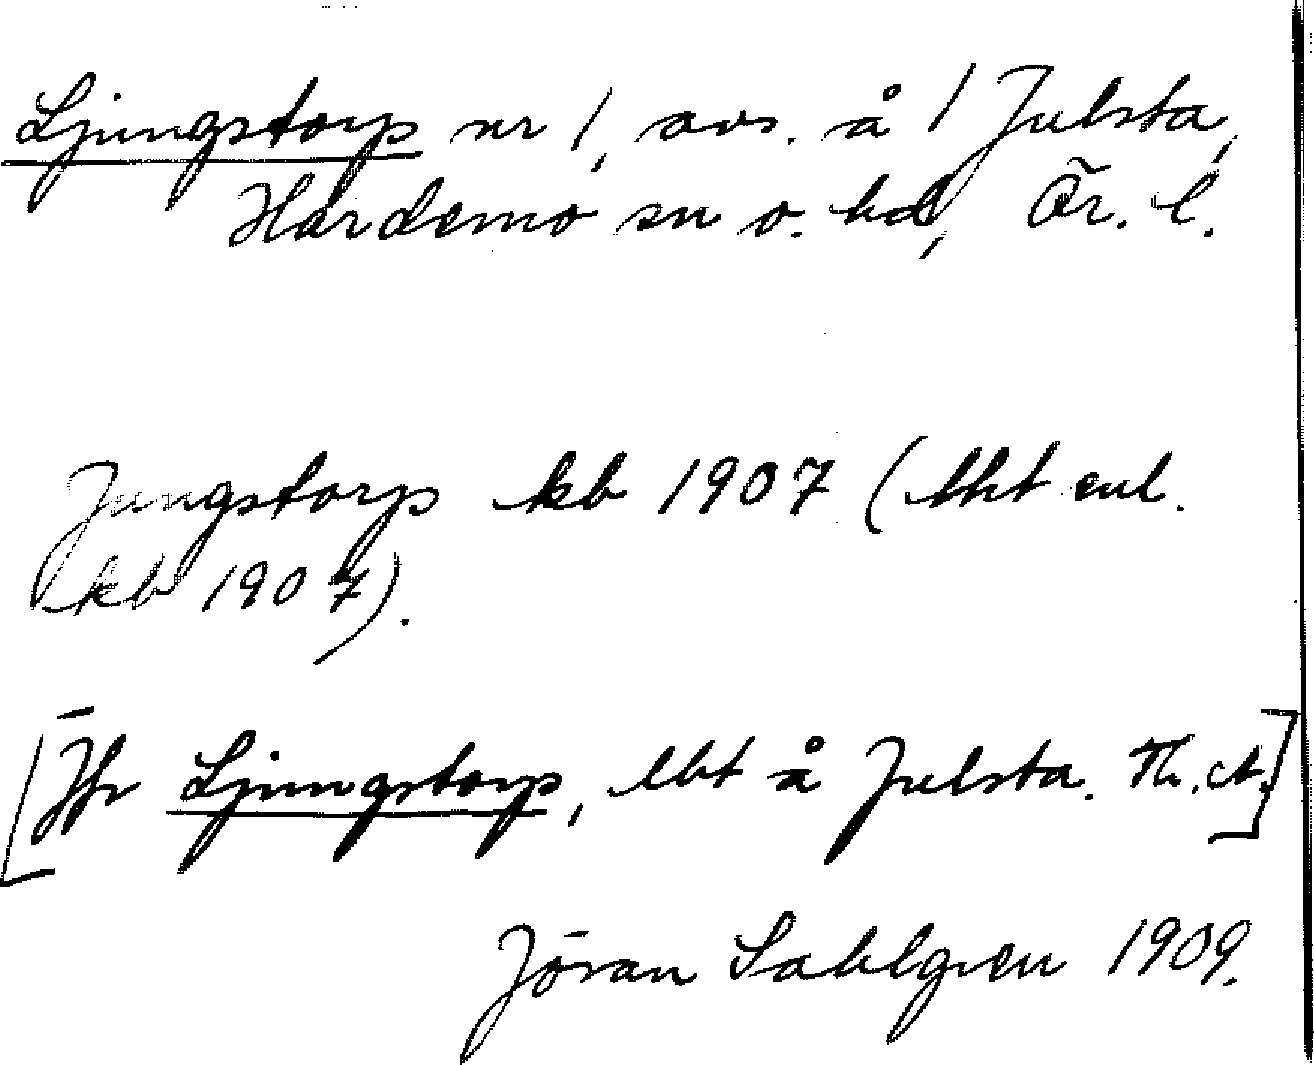 Ljungstorp nr 1, avs. å 1 Julsta,
Hardemo sn o. hd, Ör. l.
Jungstorp kb 1907 (lht enl.
kb 1907).
[Jfr Ljungstorp, lht å Julsta. Th. ct.]
Jöran Sahlgren 1909.